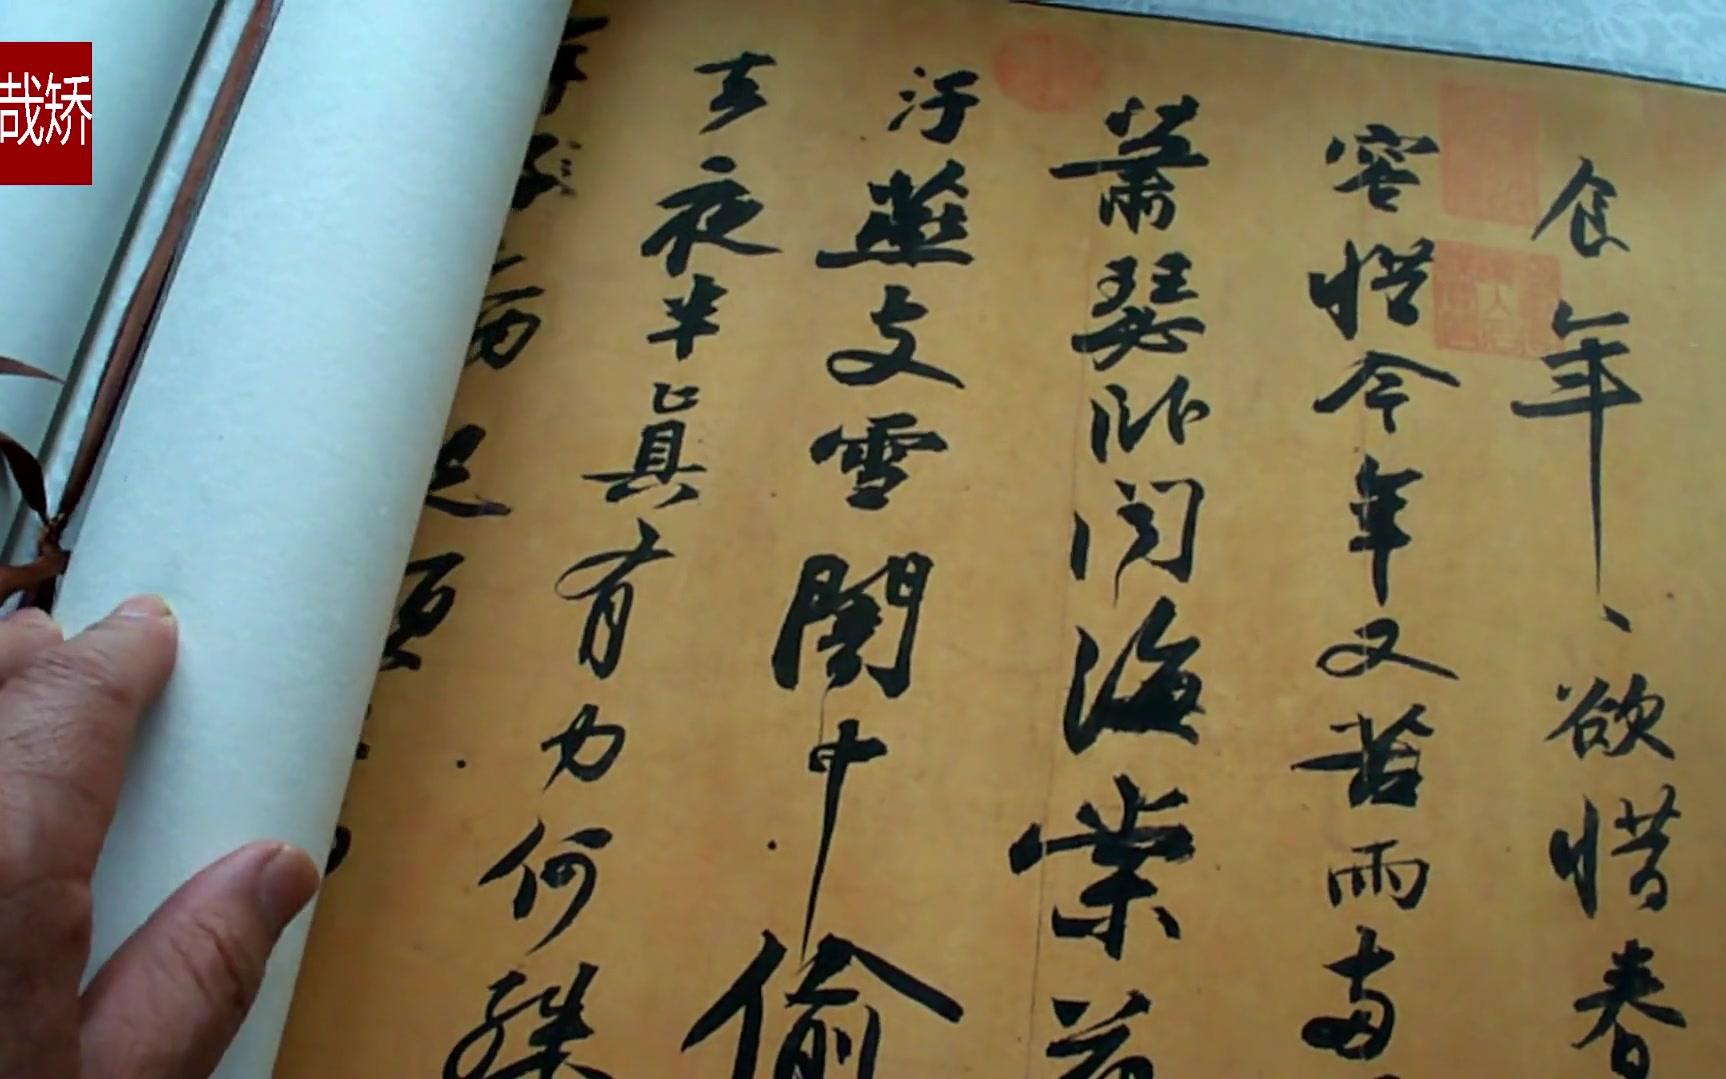 哉矫
食年、欲惜春
容惜今年又苦雨兩
蕭瑟卧聞海棠花
汙燕支雪闇中偷
去夜半真有力何殊
年病起須